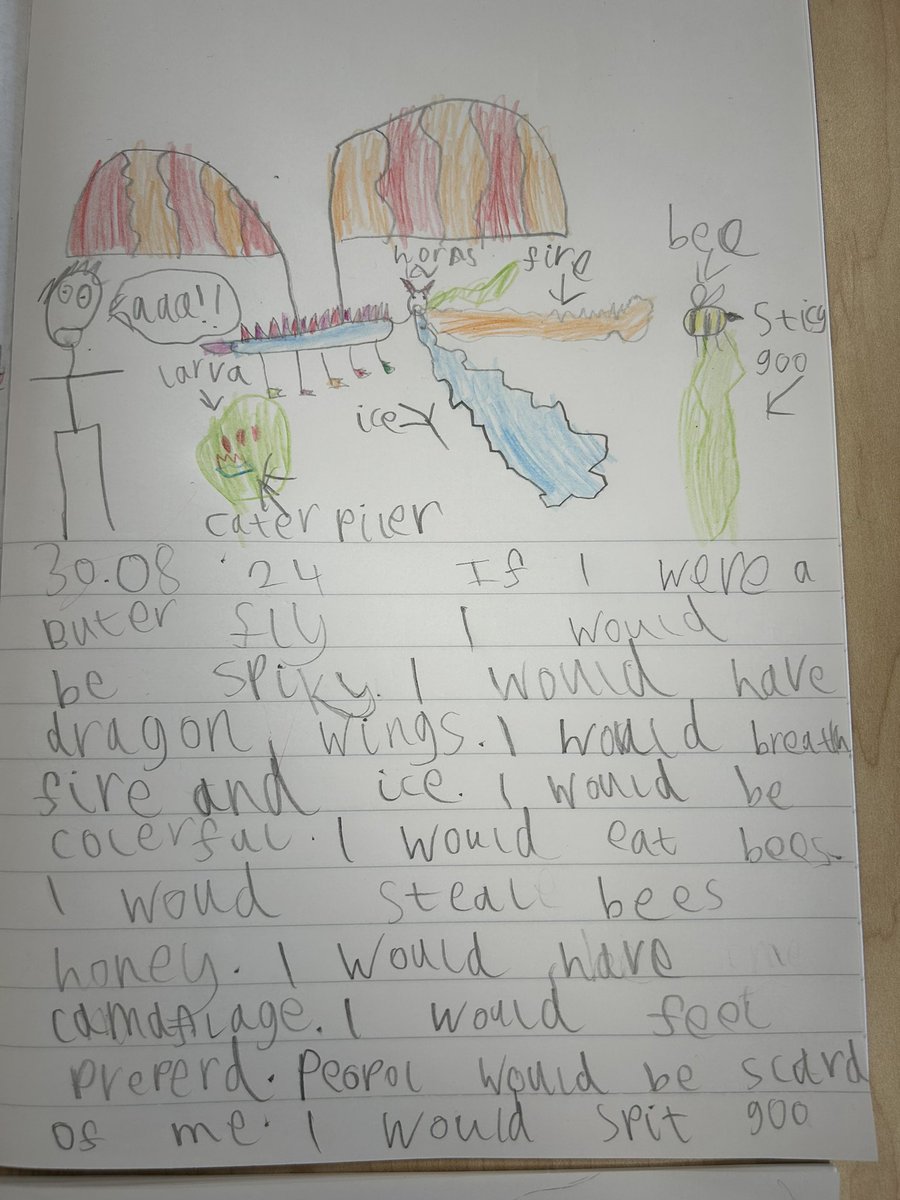 horns
fire
bee
aaa!!
Sticy
goo
larva
ice
cater piler
30.08 '24 If I were a
buter fly I would
be spiky. I would have
dragon wings. I would breath
fire and ice. I would be
colerful. I would eat bees.
I woud steal bees
honey. I would have
camaflage. I would feel
preperd. Peopol would be scard
of me. I would spit goo